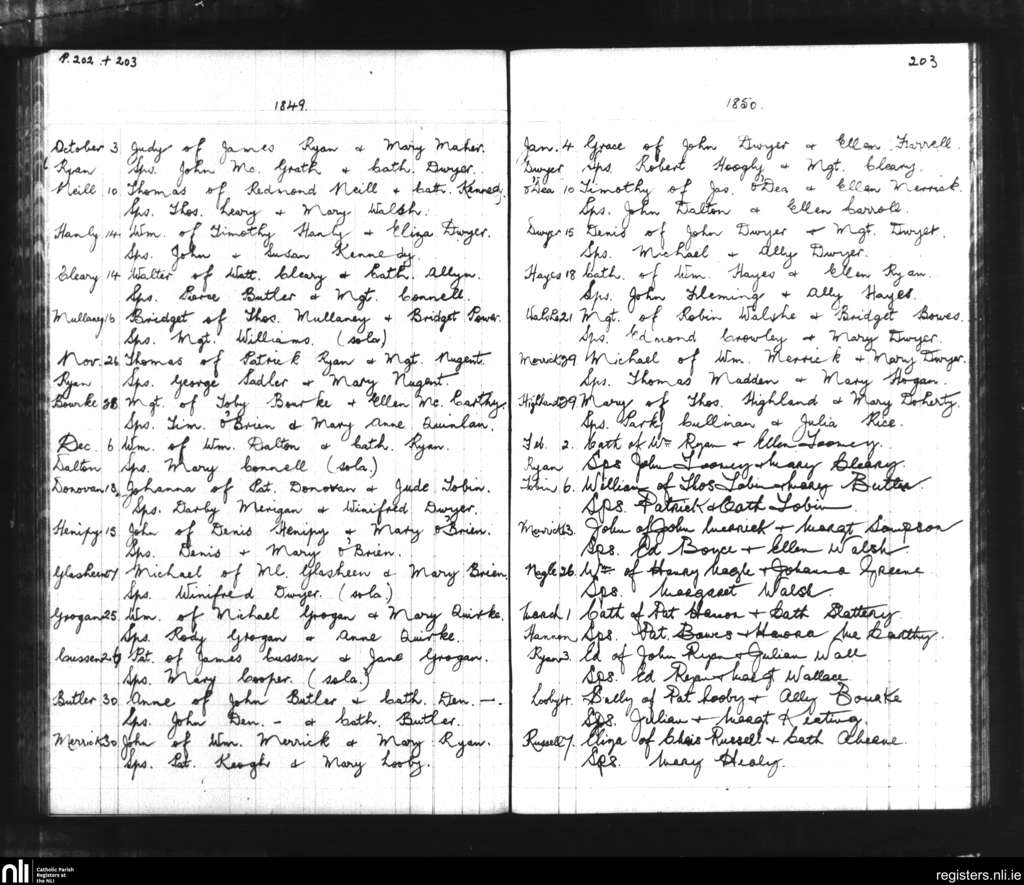 P. 202 + 203
1849.
October 3 Judy of James Ryan & Mary Maher.
Ryan Sps. John Mc. Grath & Cath. Dwyer.
Neill 10 Thomas of Redmond Neill & Cath. Kennedy.
Sps. Thos. Leary & Mary Walsh.
Hanly 14 Wm. of Timothy Hanly & Eliza Dwyer.
Sps. John & Susan Kennedy.
Cleary 14 Walter of Watt. Cleary & Cath. Allyn.
Sps. Pierce Butler & Mgt. Connell.
Mullaney 16 Bridget of Thos. Mullaney & Bridget Power.
Sps. Mgt. Williams. (sola)
Nov. 26 Thomas of Patrick Ryan & Mgt. Nugent.
Ryan Sps. George Sadler & Mary Nugent.
Bourke 28 Mgt. of Toby Bourke & Ellen Mc. Carthy
Sps. Tim. O'Brien & Mary Anne Quinlan.
Dec. 6 Wm. of Wm. Dalton & Cath. Ryan.
Dalton Sps. Mary Connell (sola.)
Donovan 13, Johanna of Pat. Donovan & Jude Tobin.
Sps. Darby Merigan & Winifred Dwyer.
Henipy 13 John of Denis Henipy & Mary O'Brien.
Sps. Denis & Mary O'Brien.
Glasheen Michael of Ml. Glasheen & Mary Brien.
Sps. Winifred Dwyer. (sola)
Grogan 25 Wm. of Michael Grogan & Mary Quirke.
Sps. Rody Grogan & Anne Quirke.
Cussen Pat. of James Cussen & Jane Grogan.
Sps. Mary Cooper. (sola.)
Butler 30 Anne of John Butler & Cath. Den. —.
Sps. John Den. - & Cath. Butler.
Merrick 30 John of Wm. Merrick & Mary Ryan.
Sps. Pat. Keoghe & Mary Looby.
203
1850.
Jan. 4 Grace of John Dwyer & Ellen Farrell.
Dwyer Sps. Robert Hooghy & Mgt. Cleary.
O'Dea 10 Timothy of Jas. O'Dea & Ellen Merrick.
Sps. John Dalton & Ellen Carroll.
Dwyer 15 Denis of John Dwyer & Mgt. Dwyer.
Sps. Michael & Ally Dwyer.
Hayes 18 Cath. of Wm. Hayes & Ellen Ryan.
Sps. John Fleming & Ally Hayes.
Walshe 21 Mgt. of Robin Walshe & Bridget Bowes.
Sps. Edmond Crowley & Mary Dwyer.
Merrick 29 Michael of Wm. Merrick & Mary Dwyer.
Sps. Thomas Madden & Mary Hogan.
Highland 29 Mary of Thos. Highland & Mary Doherty.
Sps. Parky Cullinan & Julia Rice.
Feb. 2. Cath of Wm Ryan + Ellen Looney.
Ryan Sps John Looney + Mary Cleary.
Tobin 6. William of Thos Tobin + Mary Butler
Sps. Patrick & Cath Tobin
Merrick 13. John of John Merrick + Margt Sampson
Sps. Ed Boyce + Ellen Walsh
Nagle 26. Wm of Henry Nagle + Johanna Greene
Sps. Margaret Walsh.
March 1 Cath of Pat Hannon + Cath Slattery.
Hannon Sps. Pat. Bowes + Honora Mc Carthy.
Ryan 3. Ed of John Ryan + Julian Wall
Sps. Ed Ryan + Margt Wallace.
Looby 4. Sally of Pat Looby + Ally Bourke
Sps. Julian + Margt Keating.
Russell 7. Eliza of Chris Russell + Cath Aheane.
Sps. Mary Healy.
nli Catholic Parish
Registers at
the NLI
registers.nli.ie